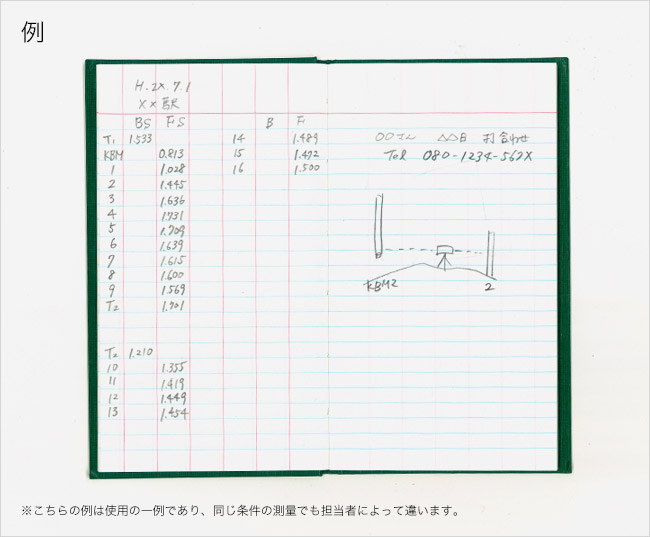 例
H.2X.7.1
××駅
BS FS
T1 1.533
KBM 0.813
1 1.028
2 1.445
3 1.636
4 1.731
5 1.709
6 1.639
7 1.615
8 1.600
9 1.569
T2 1.701
T2 1.210
10 1.355
11 1.419
12 1.449
13 1.454
B F
14 1.489
15 1.472
16 1.500
○○さん △△日 打合わせ
Tel 080-1234-567X
KBM2 2
※こちらの例は使用の一例であり、同じ条件の測量でも担当者によって違います。